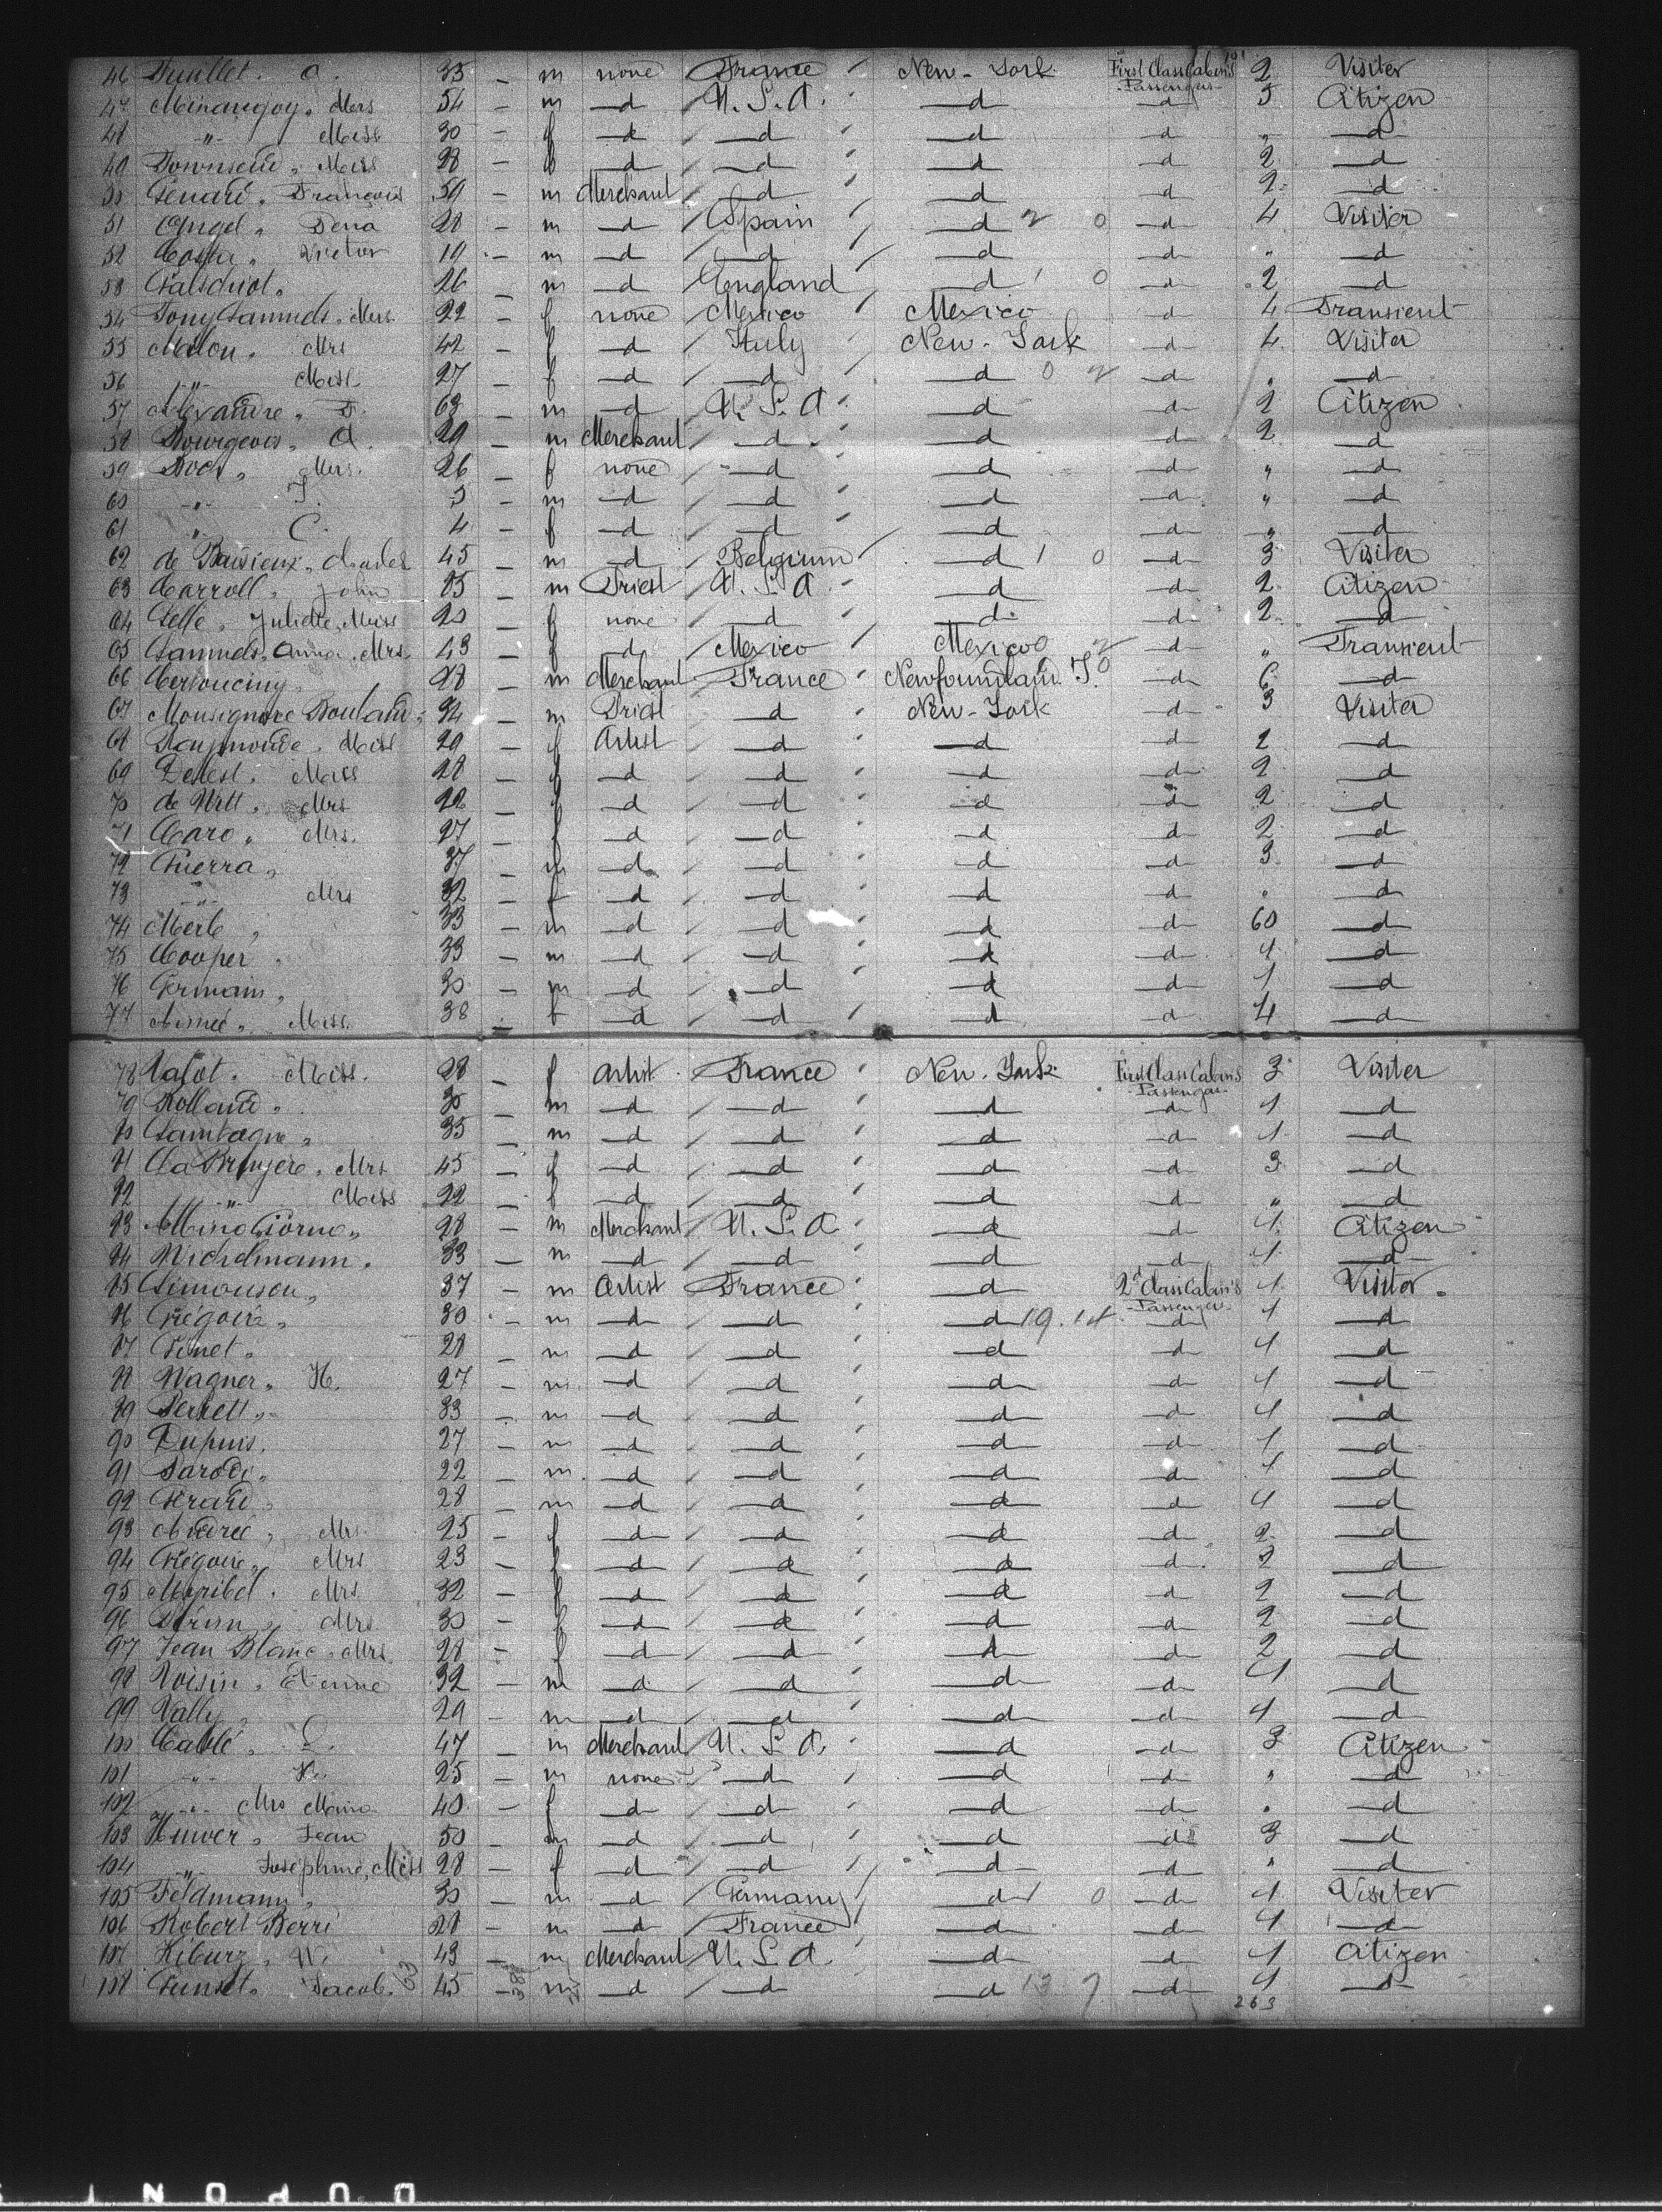 46 Fuillet. O. 35 - m none France New-York First Class Cabin's Passengers 2 Visiter
47 Mers 54 - m -d U.S.A. -d -d 5 Citizen
48 -"- Miss 30 - f -d -d -d -d " -d
49 Townsend, Miss 28 - f -d -d -d -d 2 -d
50 Génard, François 59 - m Merchant -d -d -d 2 -d
51 Angel, Dena 28 - m -d Spain -d 2 0 -d 4 Visiter
52 Costa, Victor 19 - m -d -d -d -d " -d
53 26 - m -d England -d 1 0 -d 2 -d
54 Tony Samuels, Mers 22 - f none Mexico Mexico -d 4 Transient
55 Milon, Mrs 42 - f -d Italy New-York -d 4 Visiter
56 -"- Miss 27 - f -d -d -d 0 2 -d " -d
57 Alexandre, 63 - m -d U.S.A. -d -d 2 Citizen
58 Bourgeois, A. 29 - m Merchant -d -d -d 2 -d
59 Mers. 26 - f none -d -d -d " -d
60 -"- J. 5 - m -d -d -d -d " -d
61 " C. 4 - f -d -d -d -d " -d
62 de Charles 45 - m -d Belgium -d 1 0 -d 3 Visiter
63 Carroll, John 35 - m Priest U.S.A. -d -d 2 Citizen
64 Juliette, Miss 20 - f none -d -d -d 2 -d
65 Samuels, Anna, Mrs. 43 - f -d Mexico Mexico 0 2 -d " Transient
66 28 - m Merchant France Newfoundland -d 6 -d
67 Monsignore 34 - m Priest -d New-York -d 3 Visiter
68 Raymonde, Miss 29 - f Artist -d -d -d 2 -d
69 Miss 28 - f -d -d -d -d 2 -d
70 de Witt, Mrs 22 - f -d -d -d -d 2 -d
71 Caro, Mrs. 27 - f -d -d -d -d 2 -d
72 Guerra, 37 - m -d -d -d -d 3 -d
73 -"- Mrs 32 - f -d -d -d -d " -d
74 Merle, 33 - m -d -d -d -d 60 -d
75 Cooper 33 - m -d -d -d -d 4 -d
76 Germain, 30 - m -d -d -d -d 1 -d
77 Aimée, Miss. 38 - f -d -d -d -d 4 -d
78 Miss. 28 - f Artist France New-York First Class Cabin's Passengers 3 Visiter
79 Rolland, 30 - m -d -d -d -d 1 -d
80 35 - m -d -d -d -d 1 -d
81 La Bruyere, Mrs 45 - f -d -d -d -d 3 -d
82 -"- Miss 22 - f -d -d -d -d " -d
83 28 - m Merchant U.S.A. -d -d 1 Citizen
84 Wichelmann, 33 - m -d -d -d -d 1 -d
85 Simonson, 37 - m Artist France -d 2d Class Cabin's Passengers 1 Visitor
86 Grégoire, 30 - m -d -d -d 19.14 -d 1 -d
87 Finet, 28 - m -d -d -d -d 1 -d
88 Wagner, H. 27 - m -d -d -d -d 1 -d
89 33 - m -d -d -d -d 1 -d
90 Dupuis, 27 - m -d -d -d -d 1 -d
91 Parodi, 22 - m -d -d -d -d 1 -d
92 28 - m -d -d -d -d 1 -d
93 Andrée, Mrs. 25 - f -d -d -d -d 2 -d
94 Grégoire, Mrs 23 - f -d -d -d -d 2 -d
95 Mrs 32 - f -d -d -d -d 2 -d
96 Mrs 30 - f -d -d -d -d 2 -d
97 Jean Blanc, Mrs 28 - f -d -d -d -d 2 -d
98 Voisin, Etienne 32 - m -d -d -d -d 1 -d
99 Vally, 29 - m -d -d -d -d 1 -d
100 Cablé, 47 - m Merchant U.S.A. -d -d 3 Citizen
101 -"- 25 - m none -d -d -d " -d
102 -"- Mrs Maria 40 - f -d -d -d -d " -d
103 Huwer, Jean 50 - m -d -d -d -d 3 -d
104 -"- Joséphine, Miss 28 - f -d -d -d -d " -d
105 Feldmann, 30 - m -d Germany -d 1 0 -d 1 Visiter
106 Robert Berri 28 - m -d France -d -d 1 -d
107 Kiburz, W. 43 - m Merchant U.S.A. -d -d 1 Citizen
108 Jacob. 63 45 - m -d -d -d 13 7 -d 1 -d
263